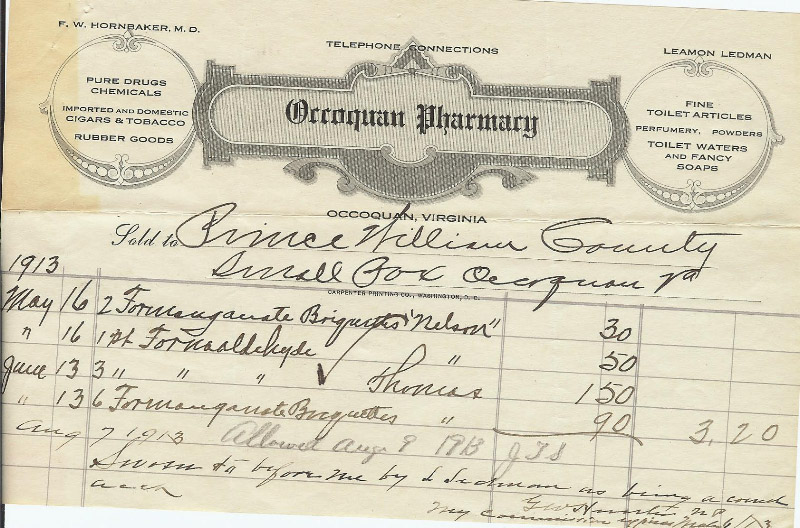 F. W. HORNBAKER, M. D.
TELEPHONE CONNECTIONS
LEAMON LEDMAN
PURE DRUGS
CHEMICALS
IMPORTED AND DOMESTIC
CIGARS & TOBACCO
RUBBER GOODS
Occoquan Pharmacy
FINE
TOILET ARTICLES
PERFUMERY, POWDERS
TOILET WATERS
AND FANCY
SOAPS
OCCOQUAN, VIRGINIA
Sold to Prince William County
1913 Small Pox Occoquan Va
CARPENTER PRINTING CO., WASHINGTON, D. C.
May 16 2 Formanganate Briquettes "Nelson" 30
" 16 1 pt Formaldehyde " 50
June 13 3 " " " Thomas 1 50
" 13 6 Formanganate Briquettes " 90 3,20
Aug 7 1913 Allowed Aug 9 1913
Sworn to before me by L Ledman as being a
My commission expires